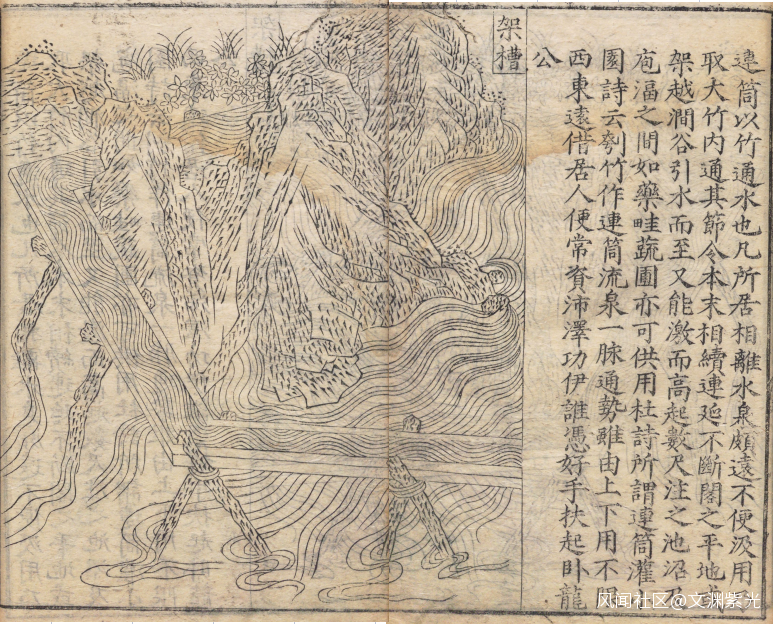 連筒以竹通水也凡所居相離水泉頗遠不便汲用
取大竹內通其節令本末相續連延不斷閣之平地或
架越澗谷引水而至又能激而高起數尺注之池沼
庖湢之間如藥畦蔬圃亦可供用杜詩所謂連筒灌
園詩云刳竹作連筒流泉一脉通勢雖由上下用不
西東遠借居人便常資沛澤功伊誰憑好手扶起卧龍
公
架槽
风闻社区@文渊紫光